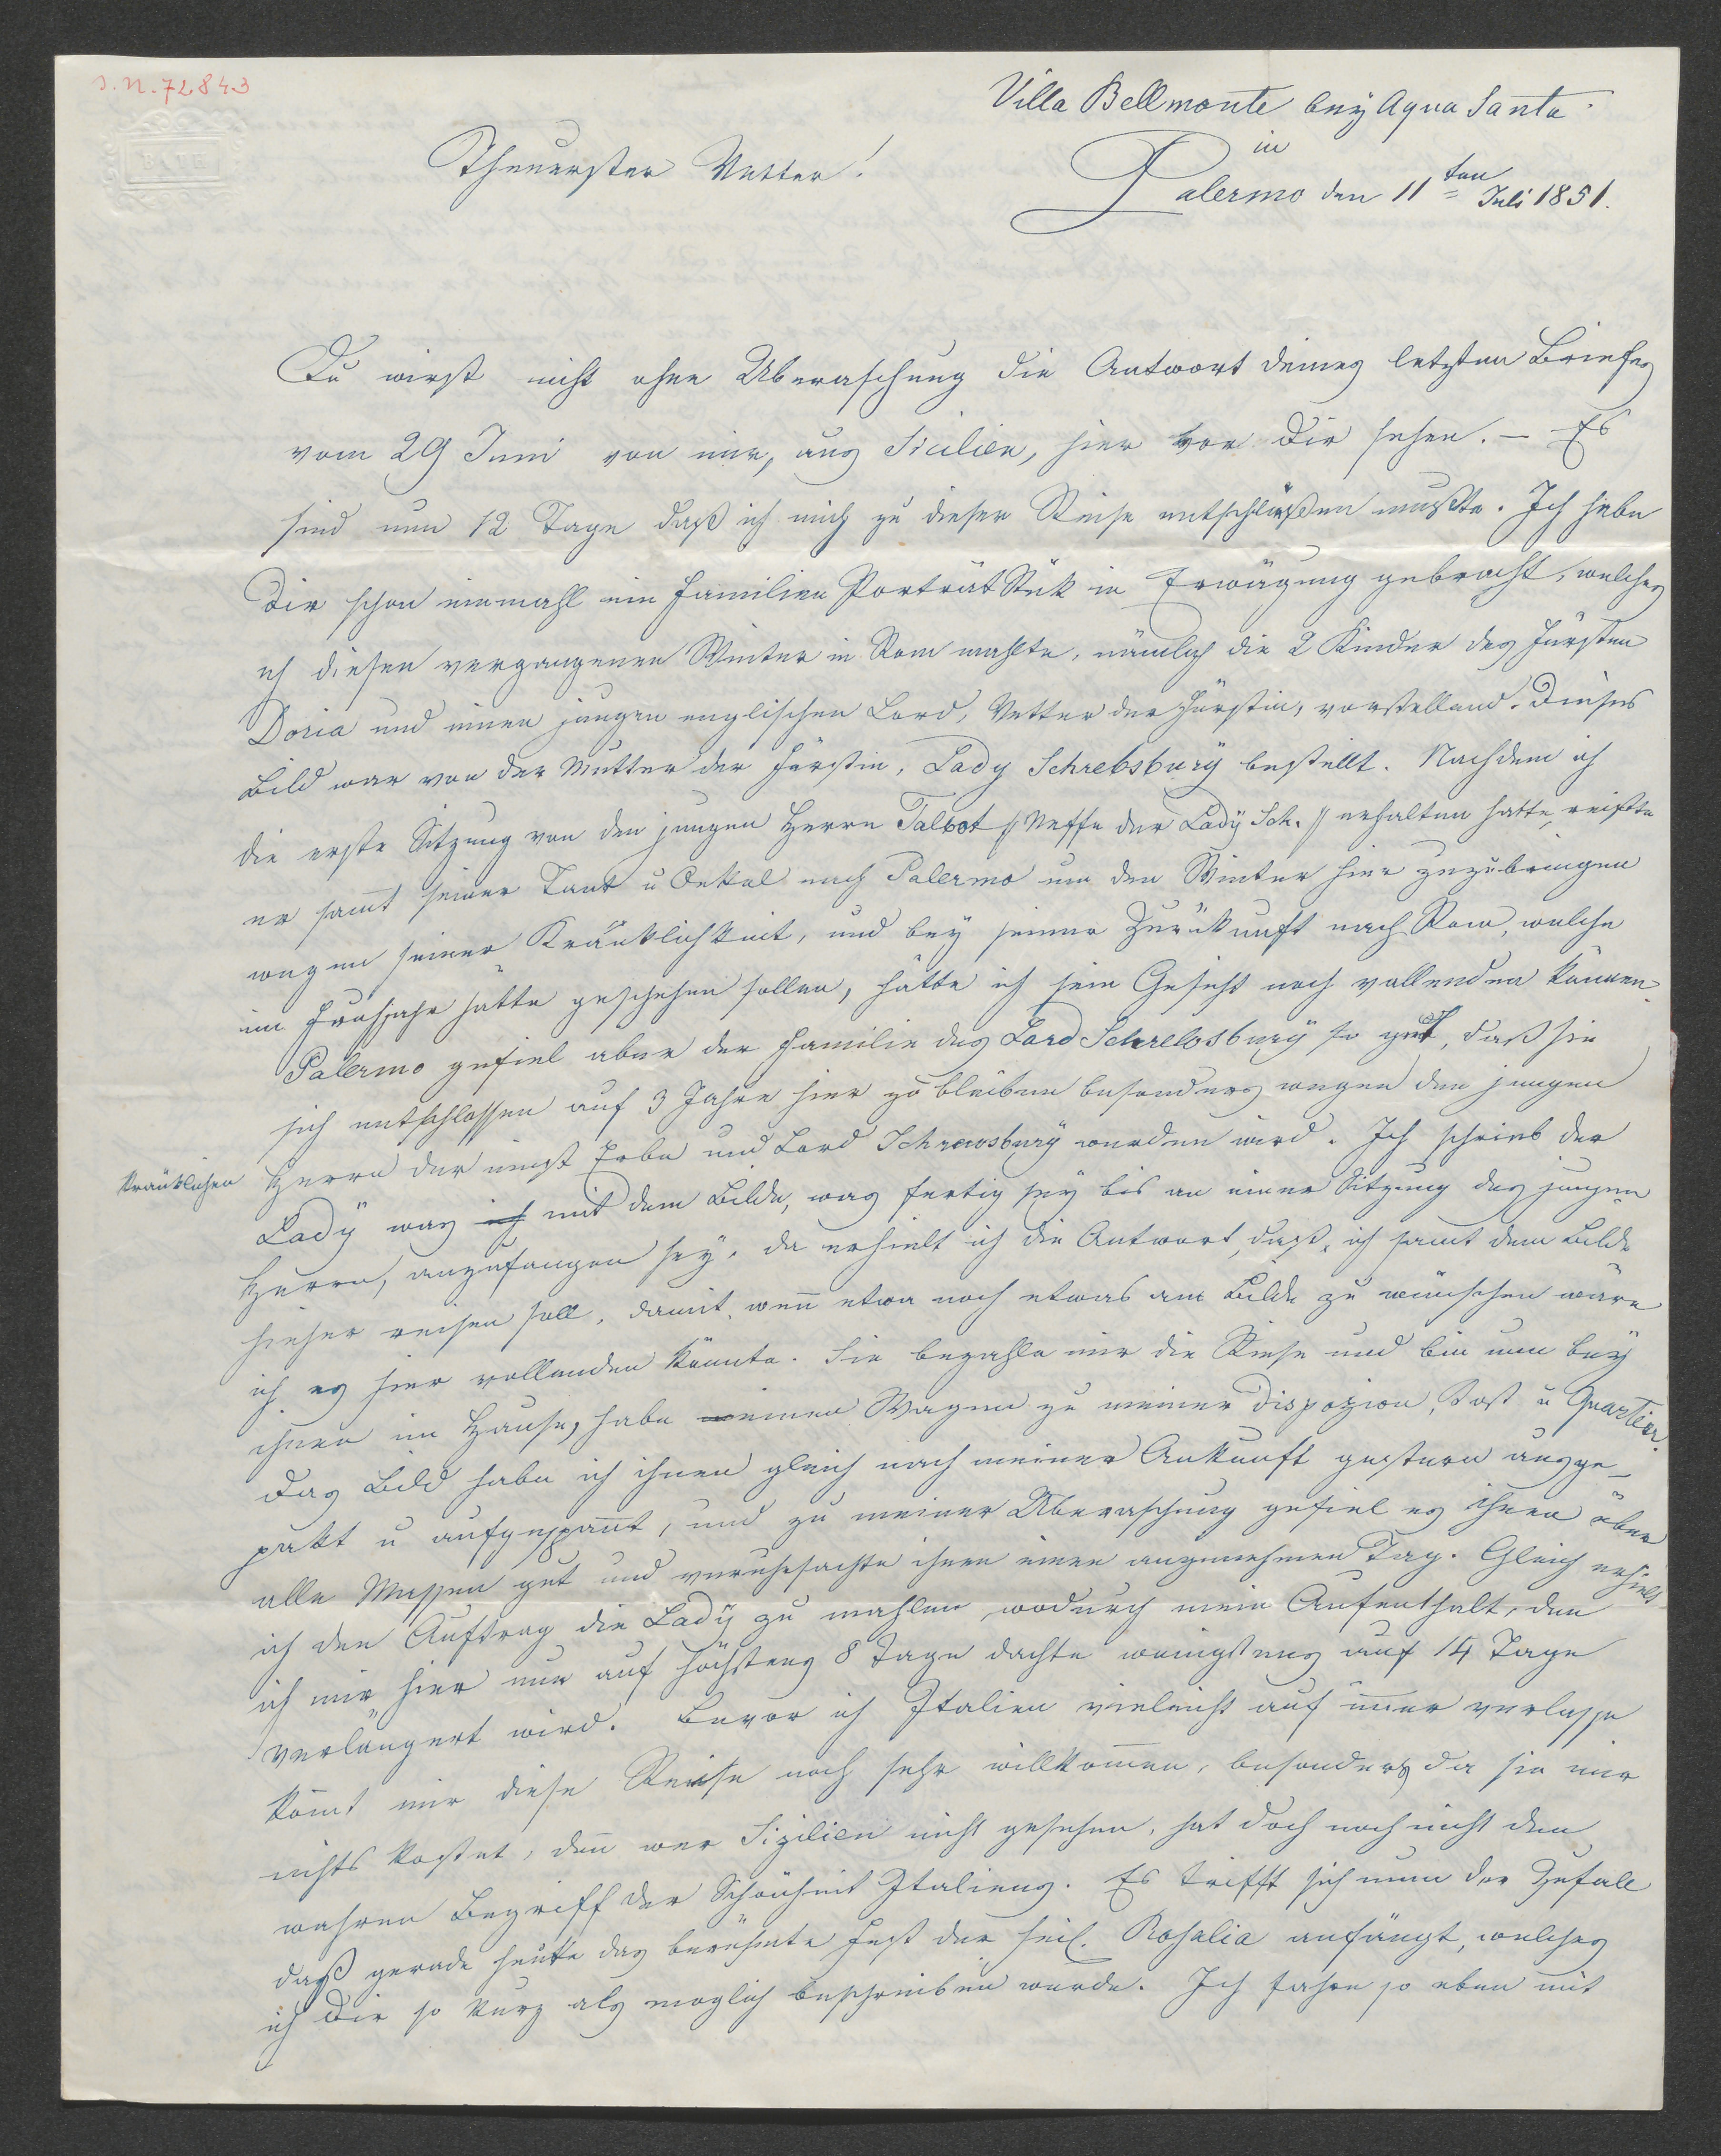 I.N. 72843
BATH
Villa Bellmonte bey Aqua Santa
in
Palermo den 11ten Juli 1851.
Theuerster Vetter!
Du wirst nicht ohne Uberaschung die Antwort deines letzten Briefes
vom 29 Juni von mir, aus Sicilien, hier vor Dir sehen. – Es
sind nun 12 Tage daß ich mich zu dieser Reise entschlüßen mußte. Ich habe
Dir schon einmahl ein Familien Porträt Stük in Erwägung gebracht, welches
ich diesen vergangenen Winter in Rom mahlte, nämlich die 2 Kinder des Fürsten
Doria und einen jungen englischen Lord, Vetter der Fürstin, vorstellend. Dieses
Bild war von der Mutter der Fürstin, Lady Schrebsbury bestellt. Nachdem ich
die erste Sitzung von den jungen Herrn Talbot // Neffe der Lady Sch. // erhalten hatte, reißte
er samt seiner Tant u Onkel nach Palermo um den Winter hier zuzubringen
wegen seiner Kränklichkeit, und bey seiner Zurükunft nach Rom, welche
im Fruhjahr hätte geschehen sollen, hätte ich sein Gesicht noch vollenden können.
Palermo gefiel aber der Familie des Lord Schrelosbury so gut, daß sie
sich entschlossen auf 3 Jahre hier zu bleiben besonders wegen den jungen
kränklichen Herrn der einst Erbe und Lord Schrewsbury werden wird. Ich schrieb der
Lady was ich mit dem Bilde, was fertig sey bis an einer Sitzung des jungen
Herrn, anzufangen sey. da erhielt ich die Antwort, daß, ich samt dem Bilde
hieher reisen soll, damit, wen̄ etwa noch etwas am Bilde zu wünschen wäre
ich es hier vollenden könnte. Sie bezahle mir die Reise und bin nun bey
ihnen im Hause, habe einen Wagen zu meiner Dispozion, Kost u Quartier.
Das Bild habe ich ihnen gleich nach meiner Ankunft gestern ausge-
pakt u aufgespan̄t, und zu meiner Uberaschung gefiel es ihnen über
alle Massen gut und verursachte ihnen einen angenehmen Tag. Gleich erhielt
ich den Auftrag die Lady zu mahlen, wodurch mein Aufenthalt, den
ich mir hier nur auf höchstens 8 Tage dachte wenigstens auf 14 Tage
verlängert wird. Bevor ich Italien vieleicht auf im̄er verlasse
kom̄t mir diese Reise noch sehr willkom̄en, besonders da sie mir
nichts kostet, den̄ wer Sizilien nicht gesehen, hat doch noch nicht den
wahren Begriff der Schönheit Italiens. Es trifft sich nun der Zufall
daß gerade heute das berühmte Fest der heil. Rosalia anfängt, welches
ich Dir so kurz als moglich beschreiben werde. Ich fahre so eben mit